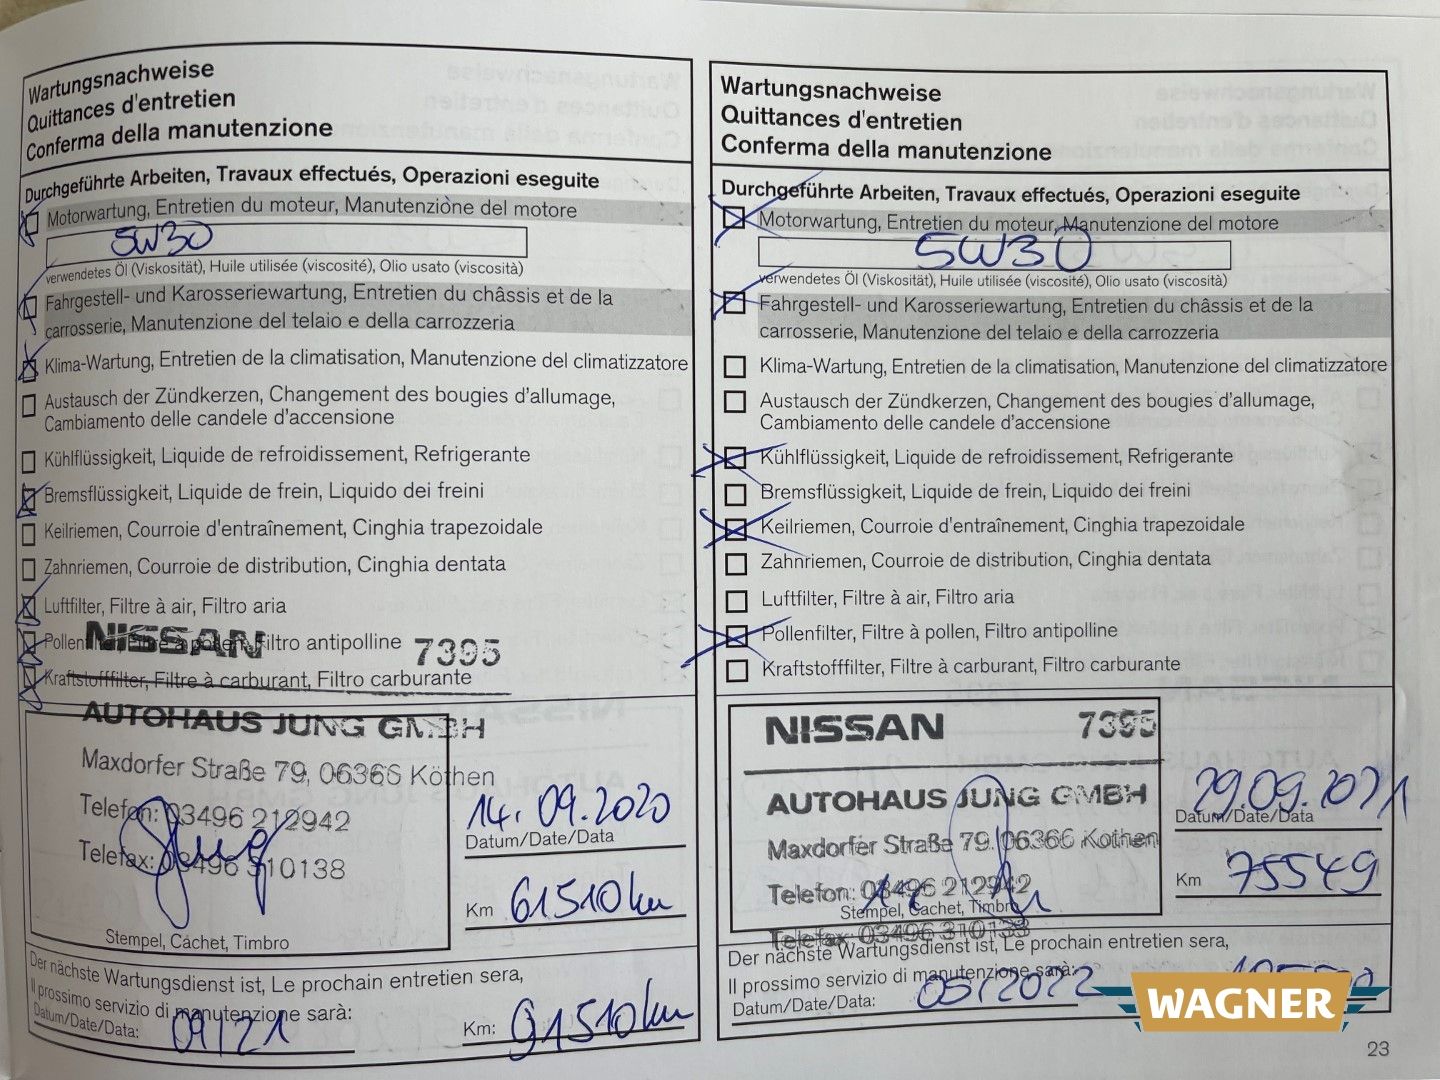 Wartungsnachweise
Quittances d'entretien
Conferma della manutenzione
Durchgeführte Arbeiten, Travaux effectués, Operazioni eseguite
Motorwartung, Entretien du moteur, Manutenzione del motore
5W30
verwendetes Öl (Viskosität), Huile utilisée (viscosité), Olio usato (viscosità)
Fahrgestell- und Karosseriewartung, Entretien du châssis et de la
carrosserie, Manutenzione del telaio e della carrozzeria
Klima-Wartung, Entretien de la climatisation, Manutenzione del climatizzatore
Austausch der Zündkerzen, Changement des bougies d'allumage,
Cambiamento delle candele d'accensione
Kühlflüssigkeit, Liquide de refroidissement, Refrigerante
Bremsflüssigkeit, Liquide de frein, Liquido dei freini
Keilriemen, Courroie d'entraînement, Cinghia trapezoidale
Zahnriemen, Courroie de distribution, Cinghia dentata
Luftfilter, Filtre à air, Filtro aria
Pollenfilter, Filtre à pollen, Filtro antipolline
NISSAN 7395
Kraftstofffilter, Filtre à carburant, Filtro carburante
AUTOHAUS JUNG GMBH
Maxdorfer Straße 79, 06366 Köthen
Telefon: 03496 212942
Telefax: 03496 310138
Jung
Stempel, Cachet, Timbro
14.09.2020
Datum/Date/Data
Km 61510 km
Der nächste Wartungsdienst ist, Le prochain entretien sera,
Il prossimo servizio di manutenzione sarà:
Datum/Date/Data: 09/21
Km: 91510 km
Wartungsnachweise
Quittances d'entretien
Conferma della manutenzione
Durchgeführte Arbeiten, Travaux effectués, Operazioni eseguite
Motorwartung, Entretien du moteur, Manutenzione del motore
5W30
verwendetes Öl (Viskosität), Huile utilisée (viscosité), Olio usato (viscosità)
Fahrgestell- und Karosseriewartung, Entretien du châssis et de la
carrosserie, Manutenzione del telaio e della carrozzeria
Klima-Wartung, Entretien de la climatisation, Manutenzione del climatizzatore
Austausch der Zündkerzen, Changement des bougies d'allumage,
Cambiamento delle candele d'accensione
Kühlflüssigkeit, Liquide de refroidissement, Refrigerante
Bremsflüssigkeit, Liquide de frein, Liquido dei freini
Keilriemen, Courroie d'entraînement, Cinghia trapezoidale
Zahnriemen, Courroie de distribution, Cinghia dentata
Luftfilter, Filtre à air, Filtro aria
Pollenfilter, Filtre à pollen, Filtro antipolline
Kraftstofffilter, Filtre à carburant, Filtro carburante
NISSAN 7395
AUTOHAUS JUNG GMBH
Maxdorfer Straße 79, 06366 Köthen
Telefon: 03496 212942
Stempel, Cachet, Timbro
Telefax: 03496 310138
29.09.2021
Datum/Date/Data
Km 75549
Der nächste Wartungsdienst ist, Le prochain entretien sera,
Il prossimo servizio di manutenzione sarà:
Datum/Date/Data: 05/2022
WAGNER
23